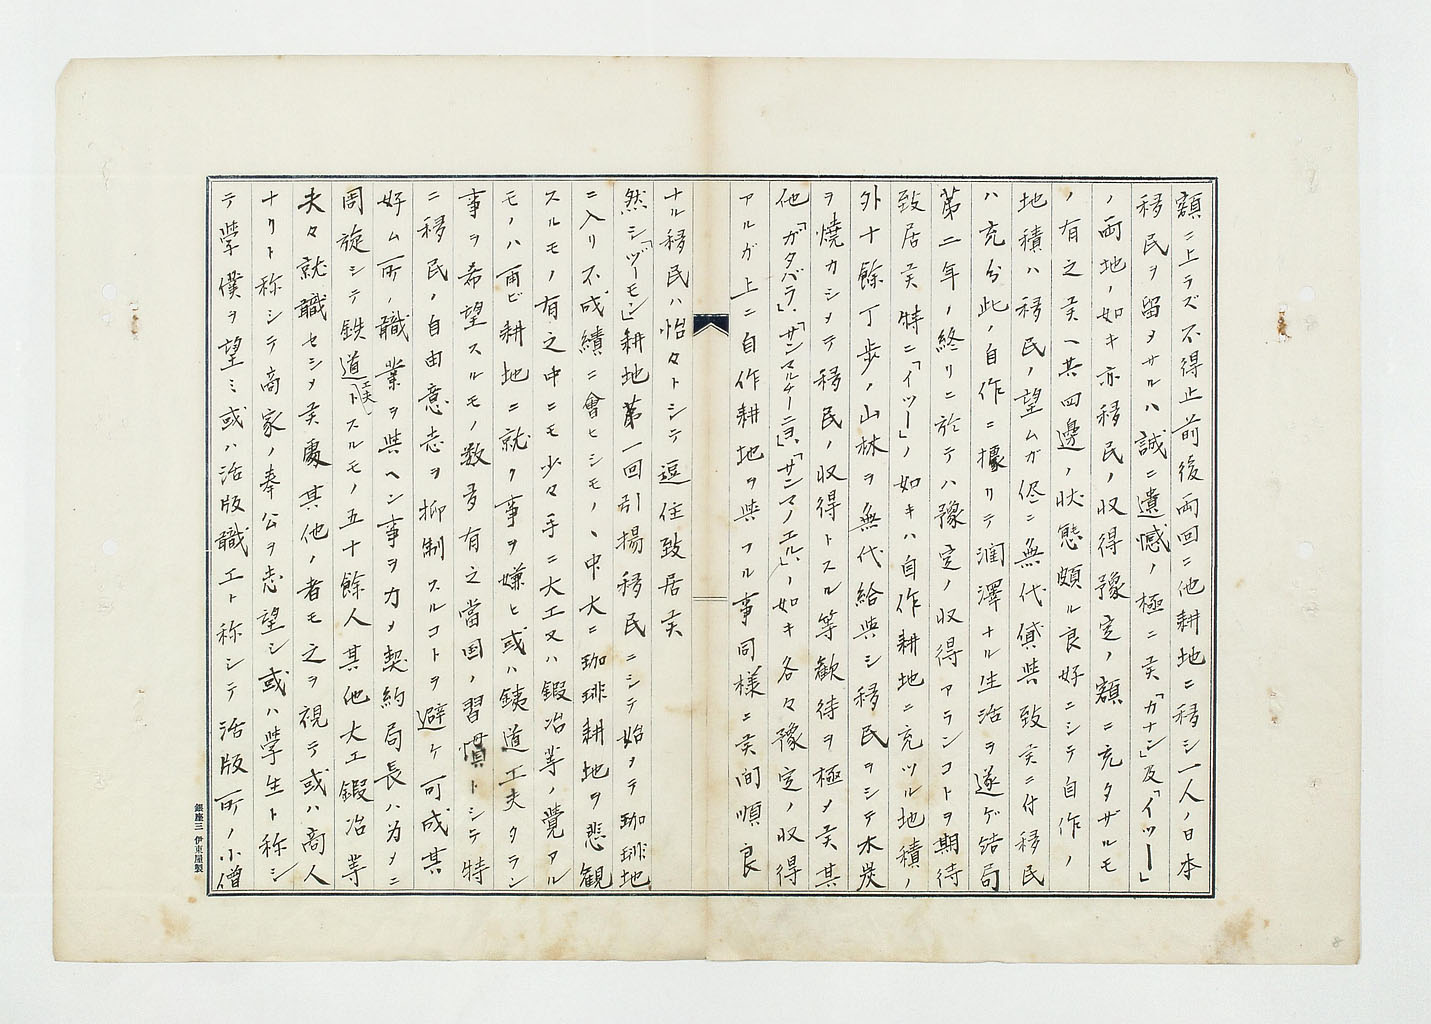 額ニ上ラズ不得止前後両回ニ他耕地ニ移シ一人ノ日本
移民ヲ留メサルハ誠ニ遺憾ノ極ニ候「カナン」及「イツー」
ノ両地ノ如キ亦移民ノ収得豫定ノ額ニ充タザルモ
ノ有之候ヘ共四邊ノ状態頗ル良好ニシテ自作ノ
地積ハ移民ノ望ムガ侭ニ無代貸與致候ニ付移民
ハ充分此ノ自作ニ據リテ潤澤ナル生活ヲ遂ゲ結局
第二年ノ終リニ於テハ豫定ノ収得アランコトヲ期待
致居候特ニ「イツー」ノ如キハ自作耕地ニ充ツル地積ノ
外十餘丁歩ノ山林ヲ無代給與シ移民ヲシテ木炭
ヲ焼カシメテ移民ノ収得トスル等歓待ヲ極メ候其
他「ガタパラ」、「サンマルチーニヨ」、「サンマノエル」、ノ如キ各々豫定ノ収得
アルガ上ニ自作耕地ヲ與フル事同様ニ候間順良
ナル移民ハ怡々トシテ逗住致居候
然シ「ヅーモン」耕地第一回引揚移民ニシテ始メテ珈琲地
ニ入リ不成績ニ會ヒシモノヽ中大ニ珈琲耕地ヲ悲観
スルモノ有之中ニモ少々手ニ大工又ハ鍛冶等ノ覺アル
モノハ再ビ耕地ニ就ク事ヲ嫌ヒ或ハ銕道工夫タラン
事ヲ希望スルモノ数多有之當国ノ習慣トシテ特
ニ移民ノ自由意志ヲ抑制スルコトヲ避ケ可成其
好ム所ノ職業ヲ與ヘン事ヲカメ契約局長ハ為メニ
周旋シテ鉄道工夫トスルモノ五十餘人其他大工鍛冶等
夫々就職セシメ候處其他ノ者モ之ヲ視テ或ハ商人
ナリト称シテ商家ノ奉公ヲ志望シ或ハ學生ト称シ
テ學僕ヲ望ミ或ハ活版職工ト称シテ活版所ノ小僧
銀座三 伊東屋製
8